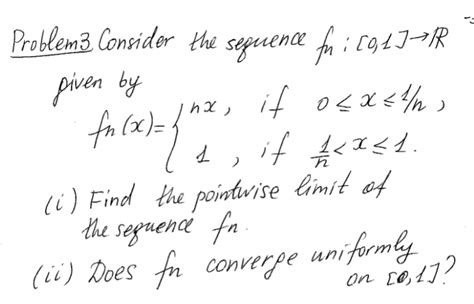 Problem3 Consider the sequence fn : [0,1] → ℝ
given by
fn(x) = { nx, if 0 ≤ x ≤ 1/n,
1, if 1/n < x ≤ 1.
(i) Find the pointwise limit of
the sequence fn.
(ii) Does fn converge uniformly
on [0,1]?